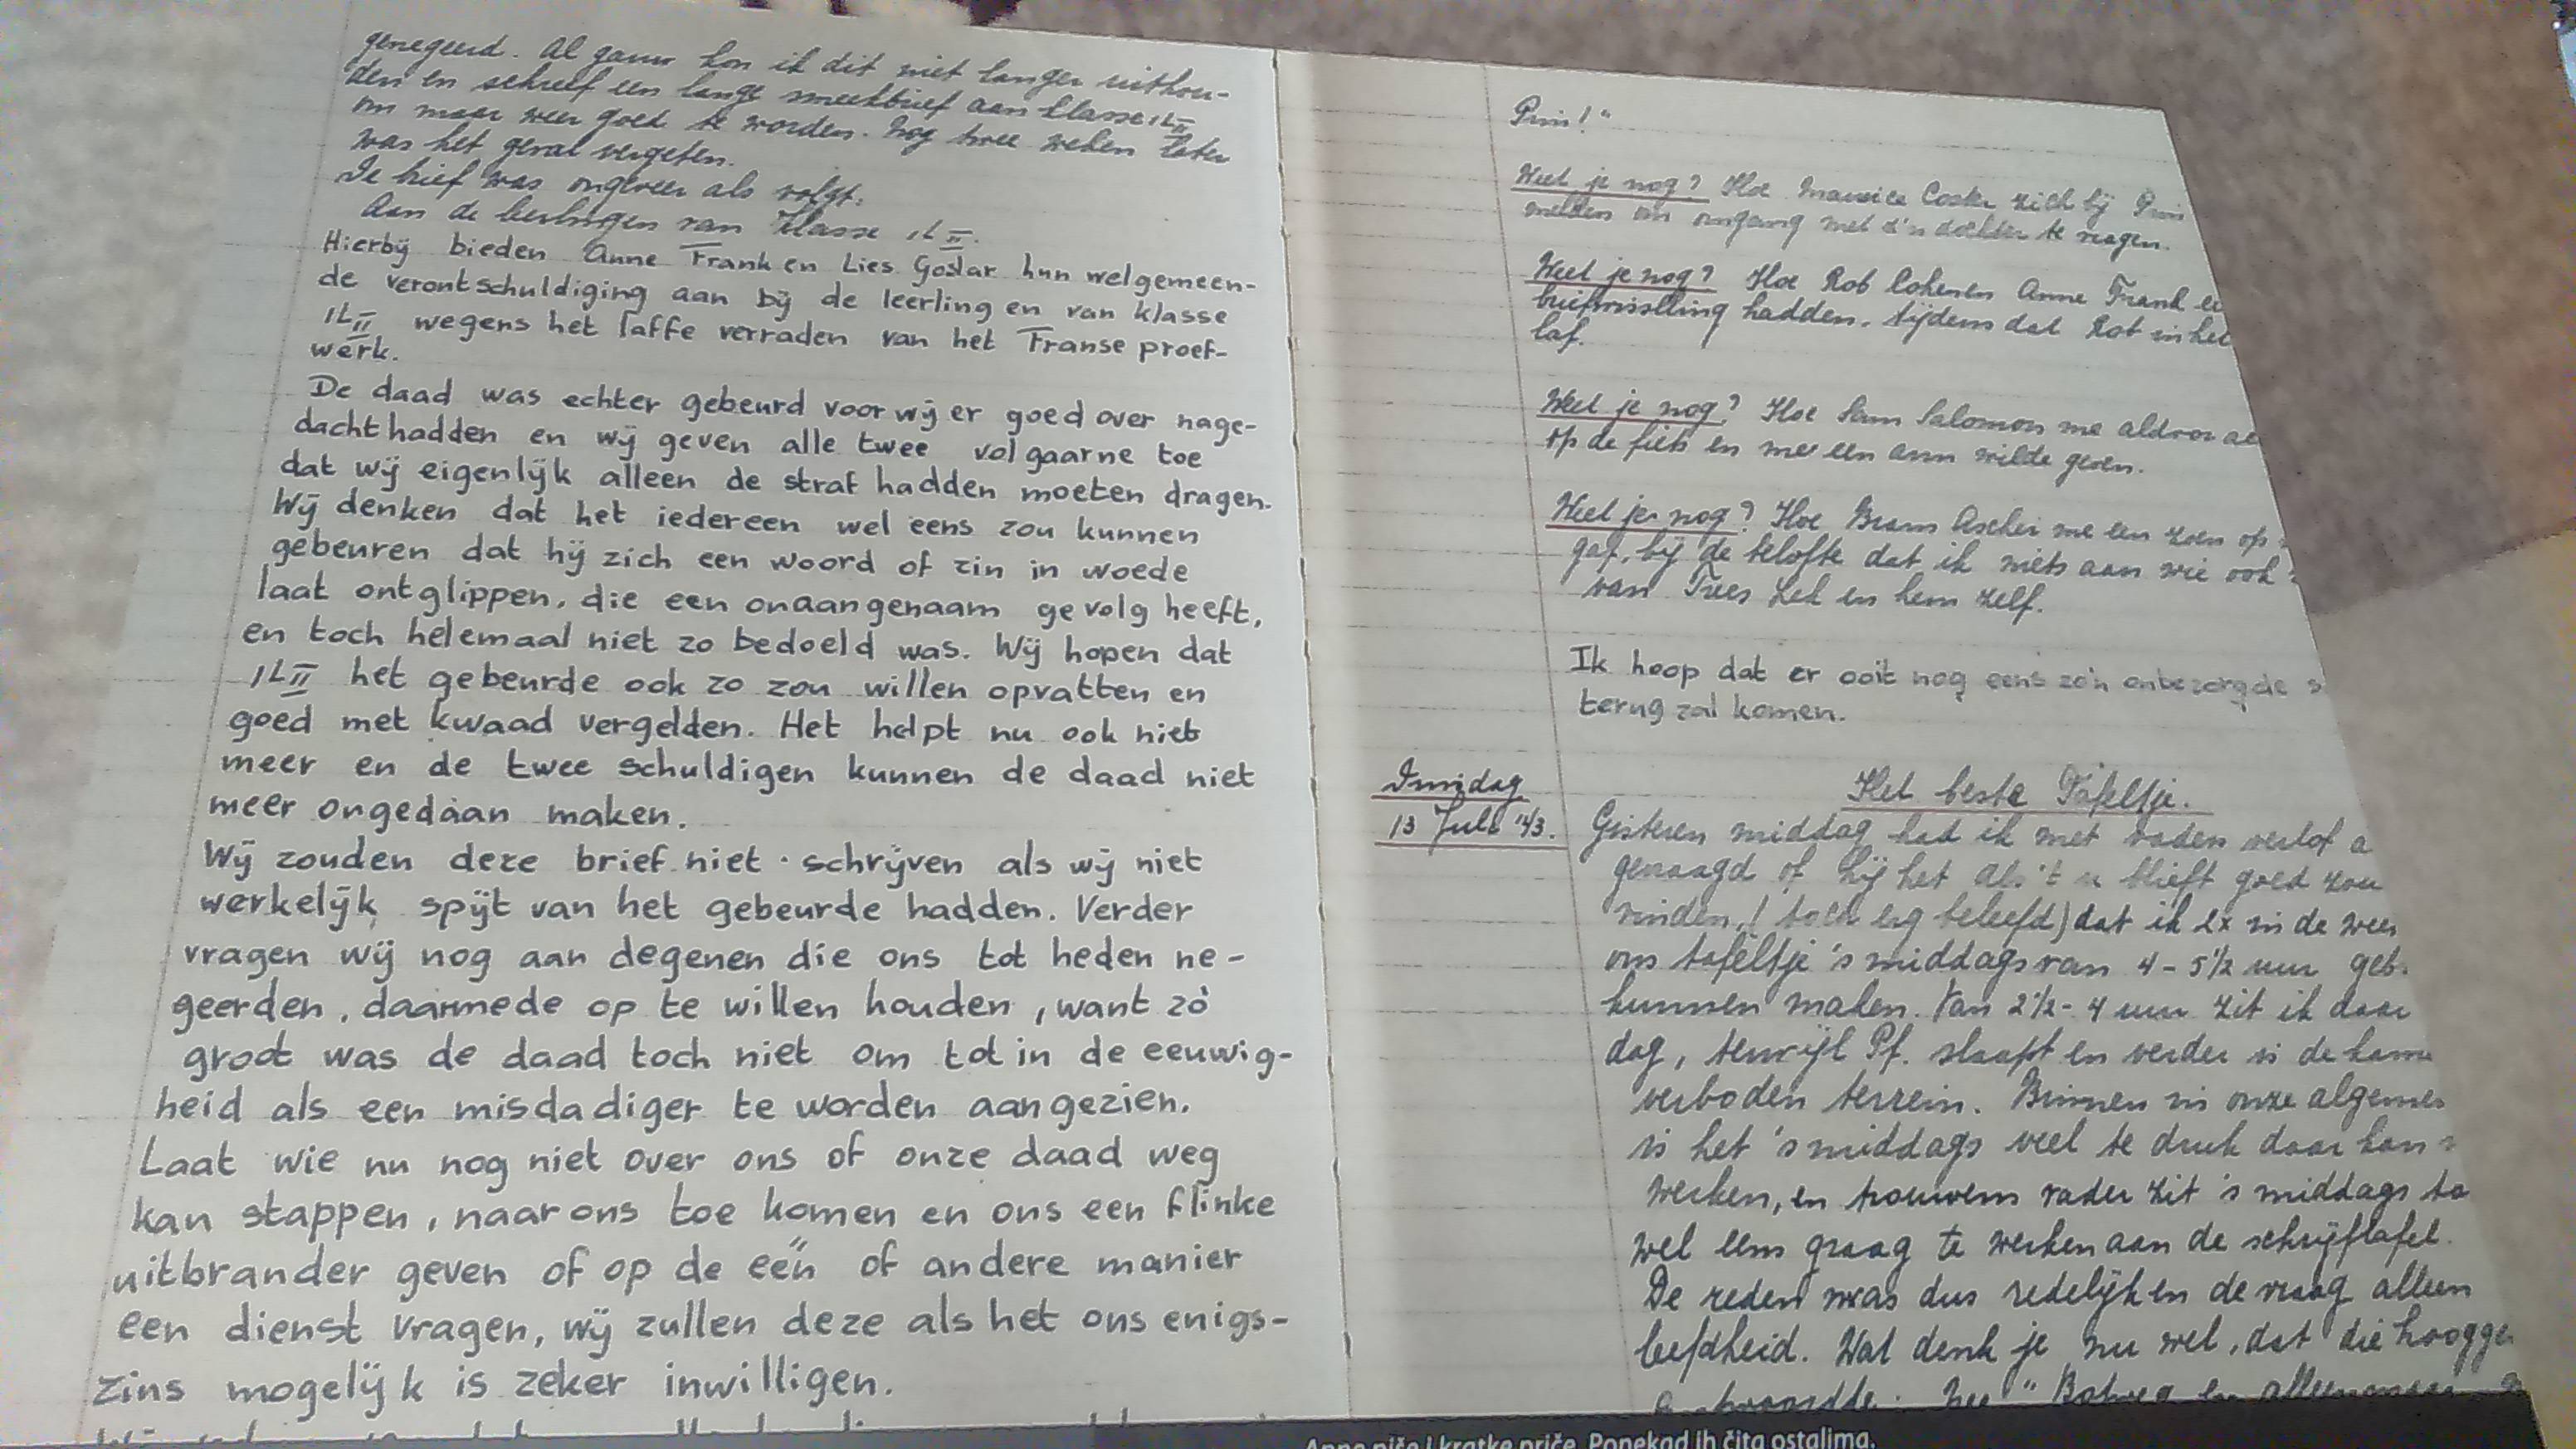 genegeerd. Al gauw kon ik dit niet langer uithou-
den en schreef een lange smeekbrief aan klasse 1L II
om maar weer goed te worden. Nog twee weken later
was het geval vergeten.
De brief was ongeveer als volgt:
Aan de leerlingen van Klasse 1L II.
Hierbij bieden Anne Frank en Lies Goslar hun welgemeen-
de verontschuldiging aan bij de leerlingen van klasse
1L II wegens het laffe verraden van het Franse proef-
werk.
De daad was echter gebeurd voor wij er goed over nage-
dacht hadden en wij geven alle twee volgaarne toe
dat wij eigenlijk alleen de straf hadden moeten dragen.
Wij denken dat het iedereen wel eens zou kunnen
gebeuren dat hij zich een woord of zin in woede
laat ontglippen, die een onaangenaam gevolg heeft,
en toch helemaal niet zo bedoeld was. Wij hopen dat
1L II het gebeurde ook zo zou willen opvatten en
goed met kwaad vergelden. Het helpt nu ook niets
meer en de twee schuldigen kunnen de daad niet
meer ongedaan maken.
Wij zouden deze brief niet schrijven als wij niet
werkelijk spijt van het gebeurde hadden. Verder
vragen wij nog aan degenen die ons tot heden ne-
geerden, daarmede op te willen houden, want zò
groot was de daad toch niet om tot in de eeuwig-
heid als een misdadiger te worden aangezien.
Laat wie nu nog niet over ons of onze daad weg
kan stappen, naar ons toe komen en ons een flinke
uitbrander geven of op de eën of andere manier
een dienst vragen, wij zullen deze als het ons enigs-
zins mogelijk is zeker inwilligen.
Pim!"
Weet je nog? Hoe Maurice Coster zich bij Pim
melden om omgang met z'n dochter te vragen.
Weet je nog? Hoe Rob Cohen en Anne Frank
briefwisseling hadden, tijdens dat Rob in het
laf.
Weet je nog? Hoe Sam Salomon me aldoor
op de fiets en me een arm wilde geven.
Weet je nog? Hoe Bram Ascher me een zoen op
gaf, bij de belofte dat ik niets aan wie ook
van Trees Lek en hem zelf.
Ik hoop dat er ooit nog eens zo'n onbezorgde
terug zal komen.
Dinsdag
13 Juli '43.
Het beste Tafeltje.
Gisteren middag had ik met vaders verlof
gevraagd of hij het als 't u blieft goed zou
vinden, (toch erg beleefd) dat ik 2x in de
ons tafeltje 's middags van 4 - 5½ uur
kunnen maken. Van 2½ - 4 uur zit ik daar
dag, terwijl Pf. slaapt en verder is de
verboden terrein. Binnen in onze
is het 's middags veel te druk daar kan
werken, en trouwens vader zit 's middags
wel eens graag te werken aan de schrijftafel.
De reden was dus redelijk en de vraag alleen
beefdheid. Wat denk je nu wel, dat die
Anne piše i kratke priče. Ponekad ih čita ostalima.